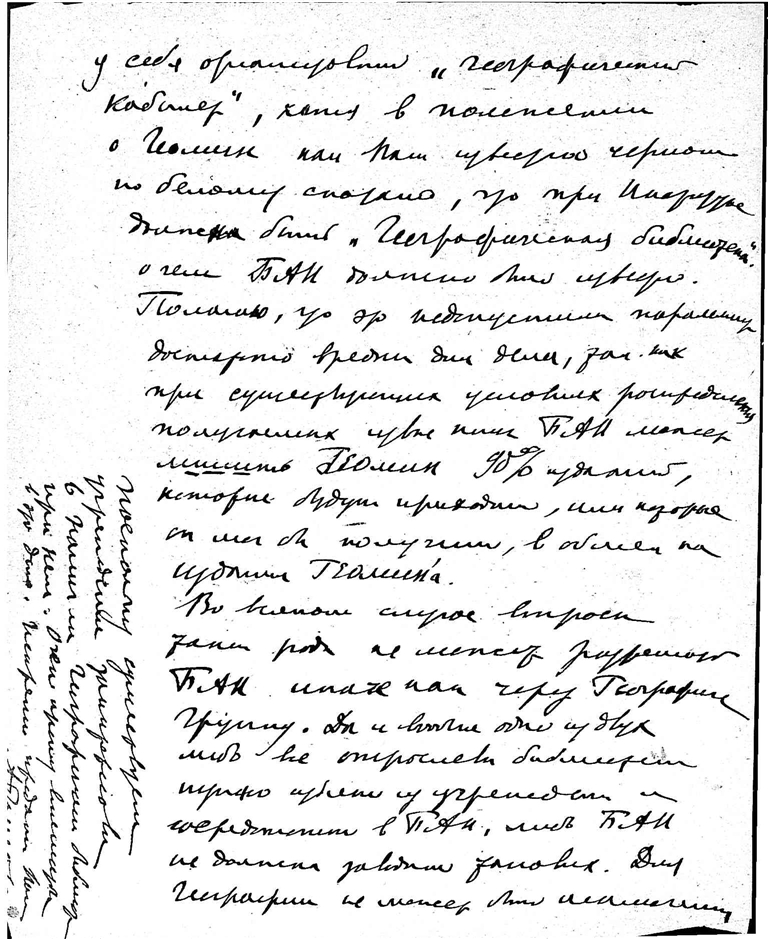 у себя организовать „Географический
Кабинет", хотя в положении
о Геомин как Вам известно черным
по белому сказано, что при Институте
должна быть „Географическая библиотека".
о чем БАН должно быть известно.
Полагаю, что это недопустимый параллелизм
вредный для дела, так как
при существующих условиях распределения
получаемых извне книг БАН может
лишить ГЕОМИН 90% изданий,
которые будут приходить, или которые
он мог бы получить, в обмен на
издания ГЕОМИН'а.
Во всяком случае вопрос
такого рода не может разрешать
БАН иначе как через Географич
Группу. Да и вообще одно из двух
либо все отраслевые библиотеки
нужно изъять из учреждений и
сосредоточить в БАН, либо БАН
не должна заводить таковых. Для
Географии не может быть исключения
поскольку существует
учреждение
в
при нем. Очень прошу
Искренно преданный Вам